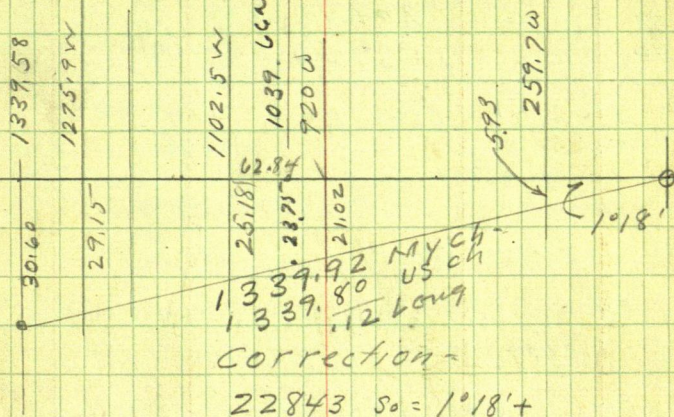 1339.58
1275.9 W
1102.5 W
1039.66 W
920 W
259.7 W
62.84
5.93
1°18'
30.60
29.15
25.18
23.75
21.02
1339.92 My ch-
1339.80 US ch
.12 Long
Correction -
22843 So = 1°18'+